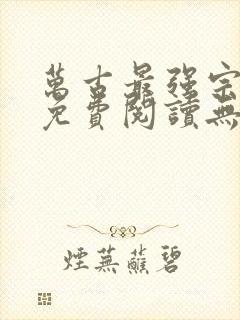 萬古最強宗
免費閱讀無
煙蕪蘸碧